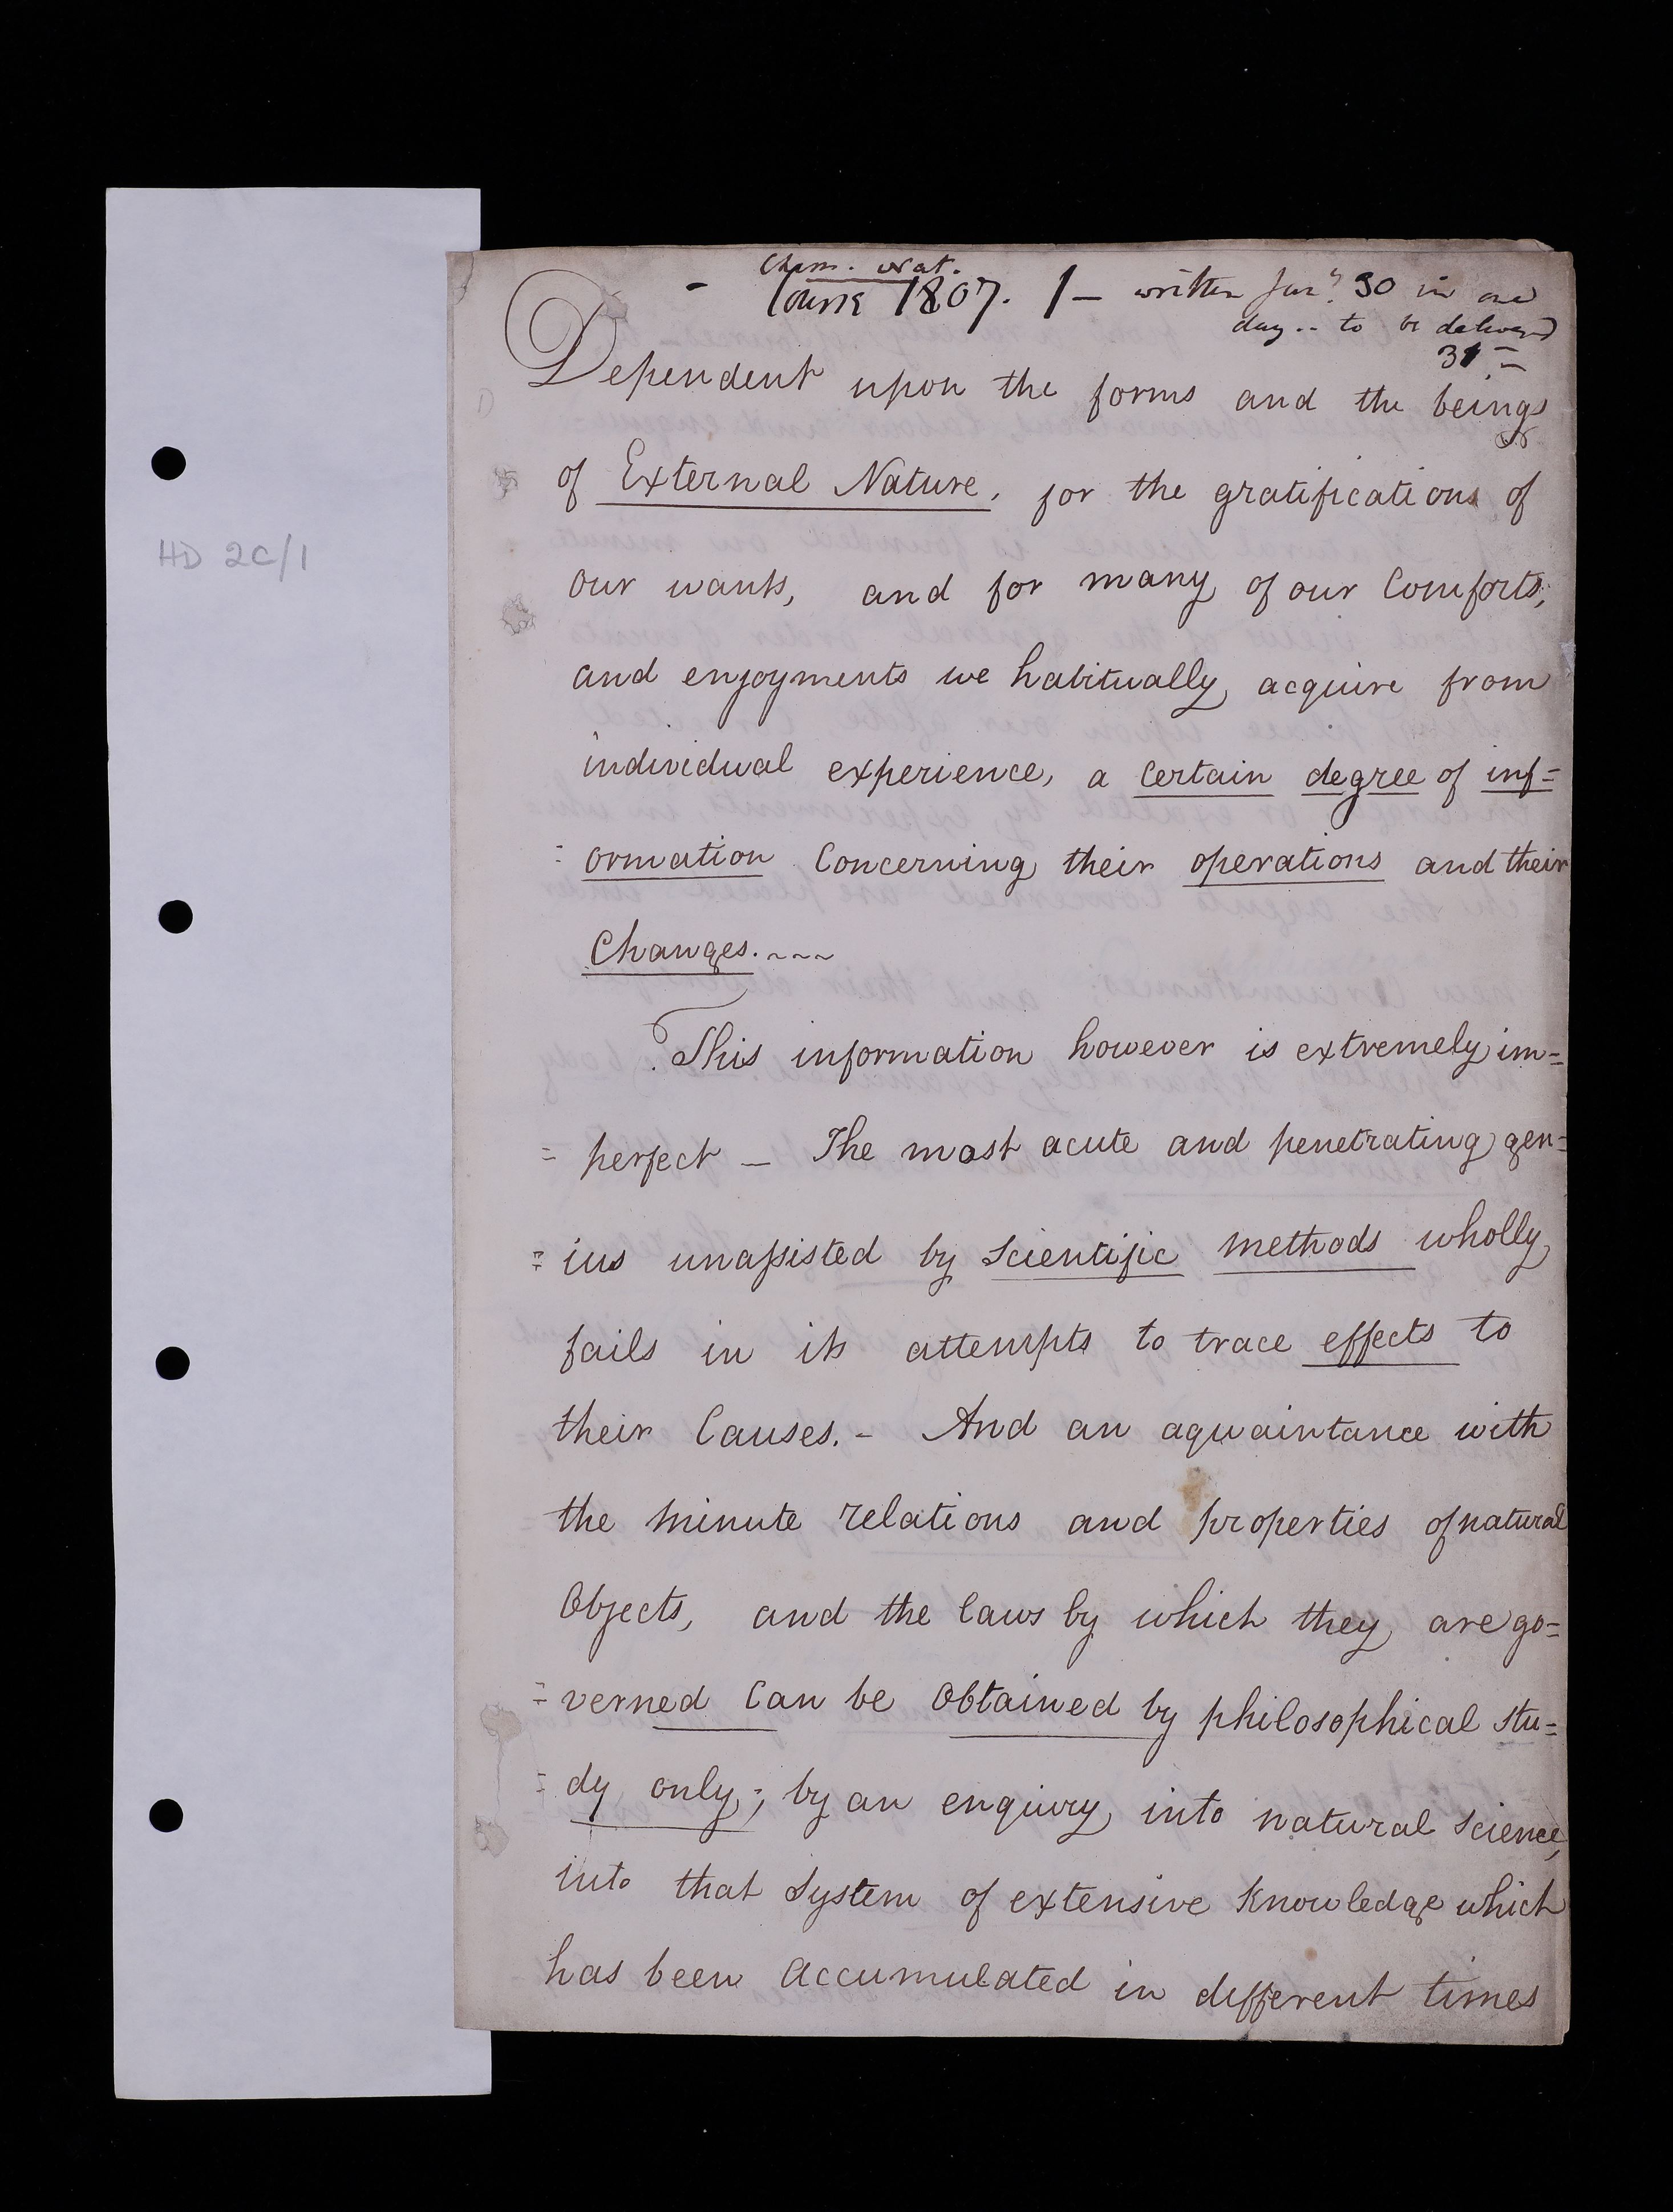 HD 2C/1
Chem. Nat.
1807. 1 — written Jany. 30 in one
day .. to be delivered
31 —
Dependent upon the forms and the beings
of External Nature, for the gratifications of
our wants, and for many of our Comforts,
and enjoyments we habitually acquire from
individual experience, a Certain degree of inf=
=ormation Concerning their operations and their
Changes. ~~~
This information however is extremely im=
=perfect — The most acute and penetrating gen=
=ius unassisted by scientific methods wholly
fails in its attempts to trace effects to
their Causes. – And an aquaintance with
the minute relations and properties of natural
Objects, and the laws by which they are go=
=verned Can be Obtained by philosophical stu=
=dy only; by an enquiry into natural science,
into that System of extensive Knowledge which
has been accumulated in different times